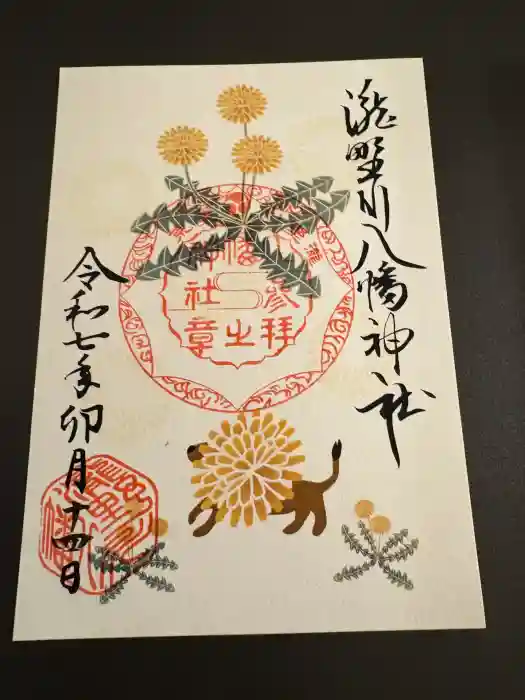 瀧野川八幡神社
参拝之
社章
令和七年卯月十四日